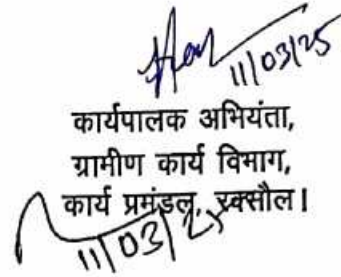 11/03/25
कार्यपालक अभियंता,
ग्रामीण कार्य विभाग,
कार्य प्रमंडल, रक्सौल।
11/03/25